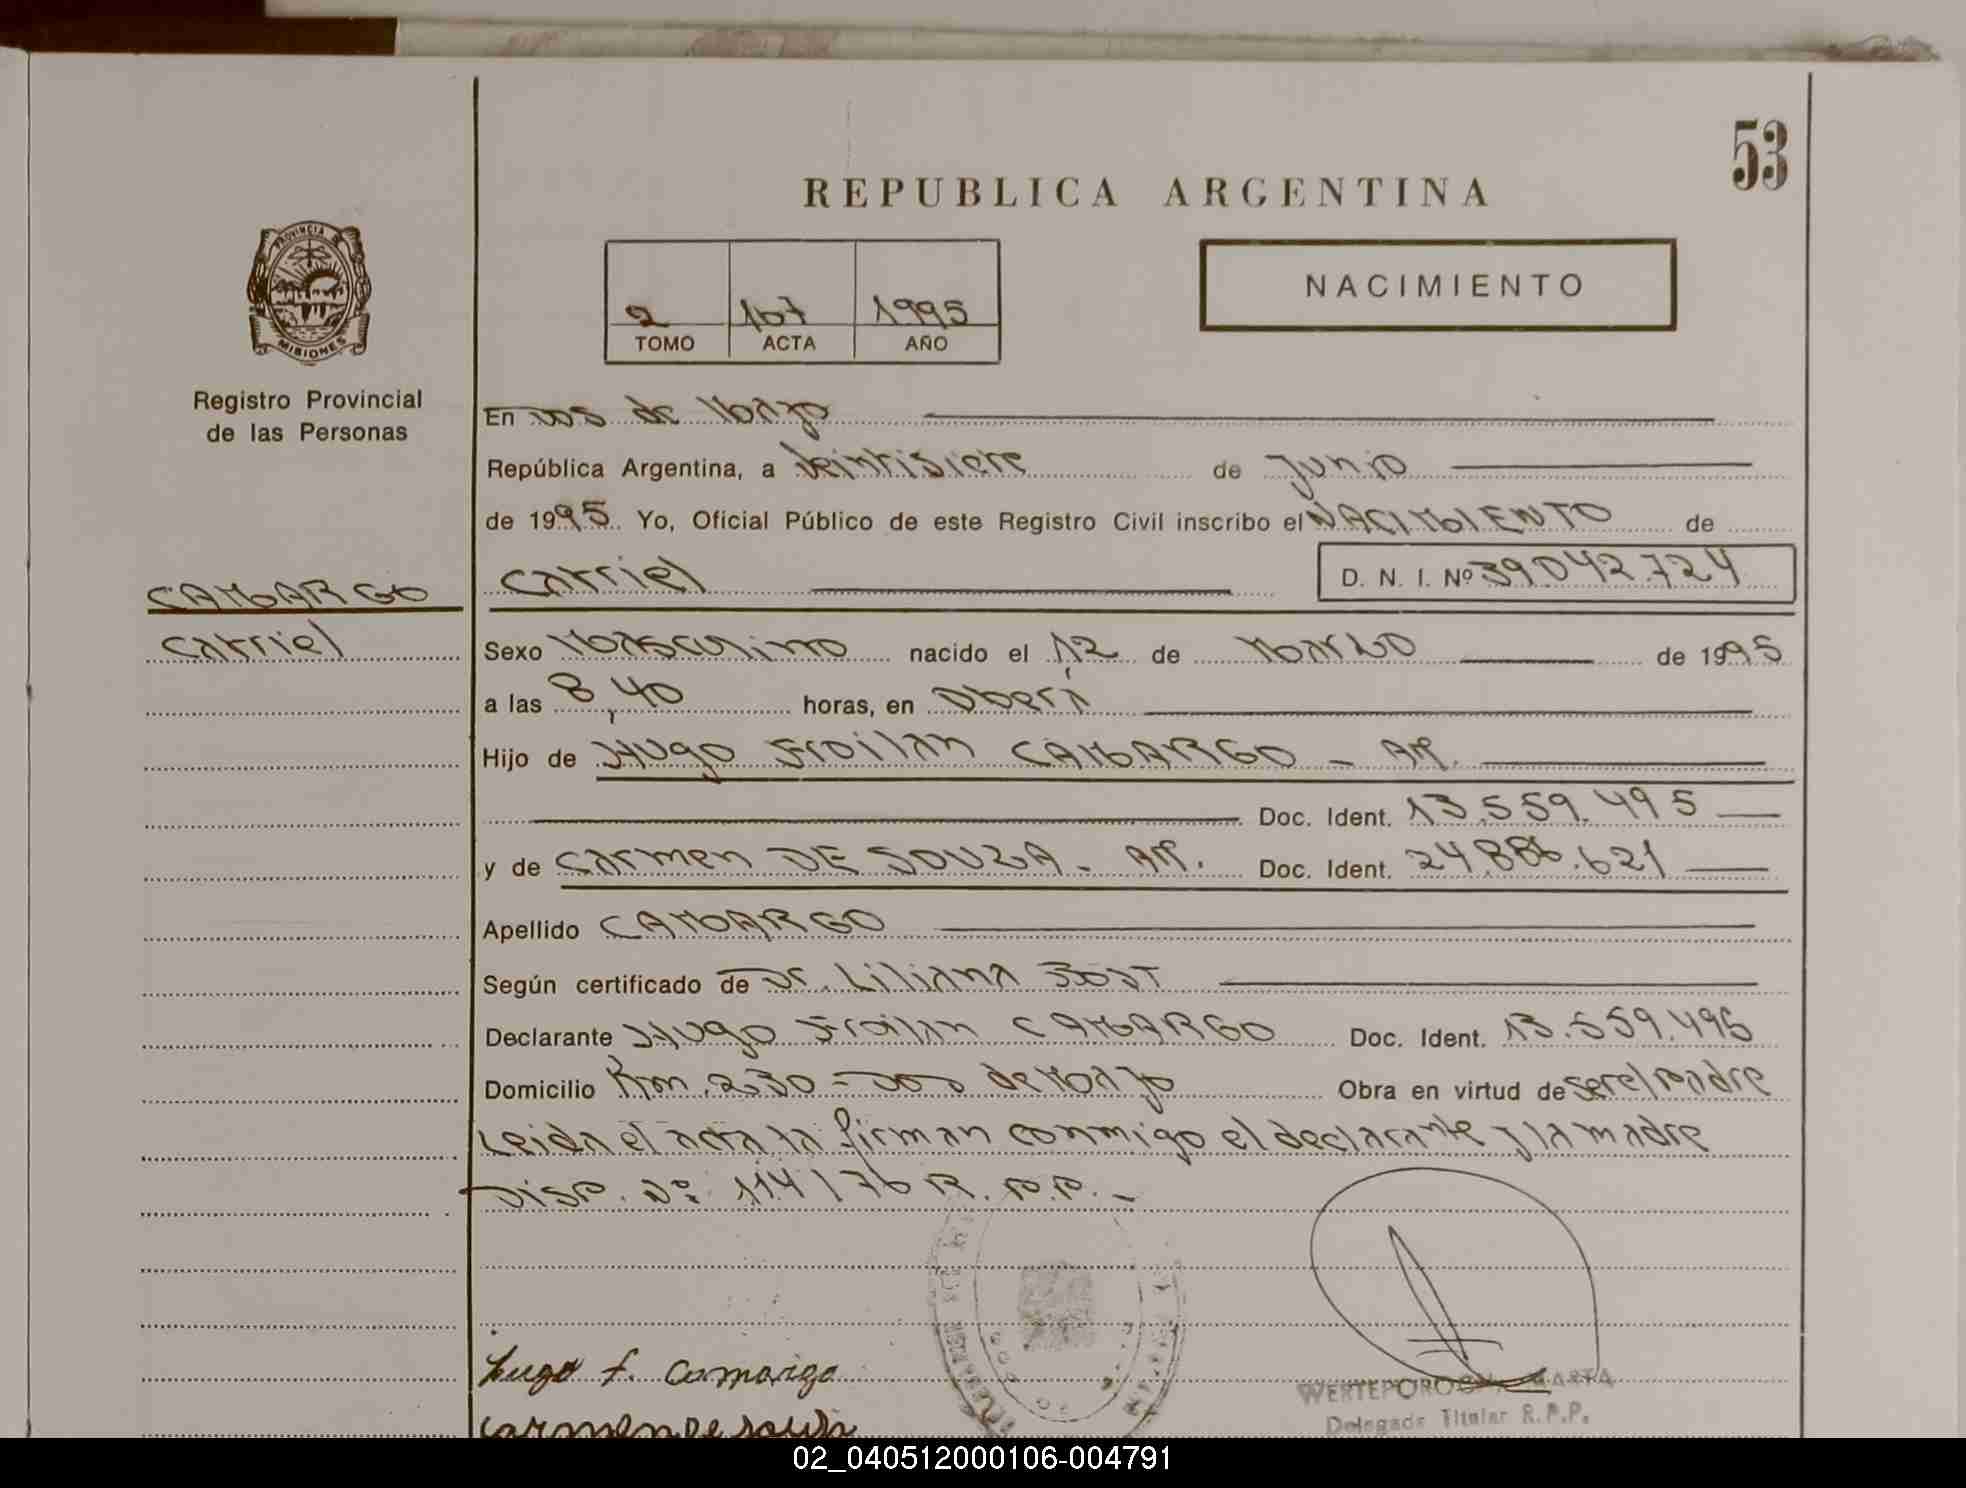 53
REPUBLICA ARGENTINA
PROVINCIA DE
MISIONES
Registro Provincial
de las Personas
2 107 1995
TOMO ACTA AÑO
NACIMIENTO
En DOS de Mayo
República Argentina, a Veintisiete de Junio
de 1995 Yo, Oficial Público de este Registro Civil inscribo el NACIMIENTO de
Carriel D. N. I. Nº 39.042.724
CAMARGO
Carriel
Sexo Masculino nacido el 12 de MARZO de 1995
a las 8,40 horas, en Oberá
Hijo de Hugo Froilan CAMARGO - AR.
Doc. Ident. 13.559.495
y de Carmen DE SOUZA - AR. Doc. Ident. 24.886.621
Apellido CAMARGO
Según certificado de Dr. Liliana
Declarante Hugo Froilan CAMARGO Doc. Ident. 13.559.495
Domicilio Km. 230 - Dos de Mayo Obra en virtud de ser el padre
Leida el acta la firman conmigo el declarante y la madre
DISP. Nº 114/76 R.P.P.-
Hugo f. Camargo
Carmen De Souza
MARTA
Delegada Titular R.P.P.
02_040512000106-004791